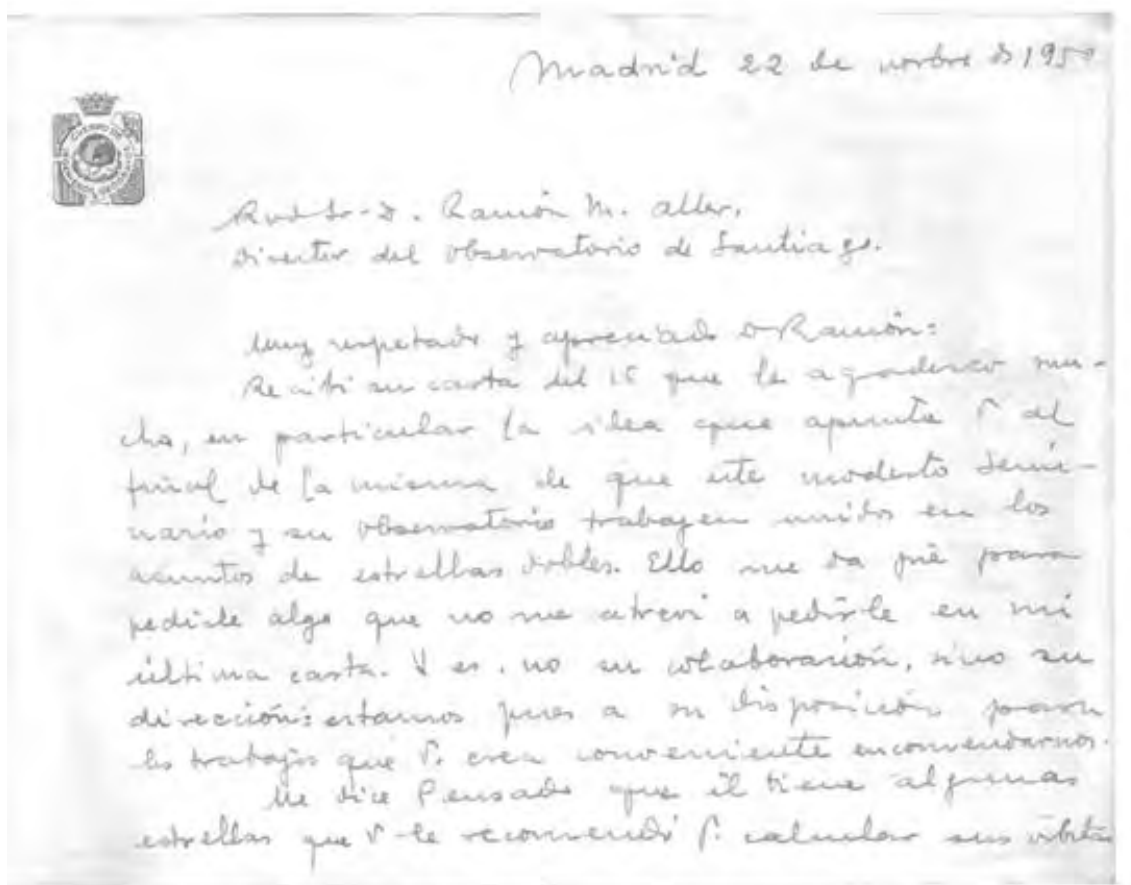 Madrid 22 de novbre de 1950
CUERPO DE
INGENIEROS GEOGRAFOS
Rvdo Sr. D. Ramón M. Aller.
Director del Observatorio de Santiago.
Muy respetado y apreciado D Ramón:
Recibí su carta del 15 que le agradezco mu-
cho, en particular la idea que apunta V. al
final de la misma de que este modesto Semi-
nario y su Observatorio trabajen unidos en los
asuntos de estrellas dobles. Ello me da pié para
pedirle algo que no me atreví a pedirle en mi
última carta. Y es, no su colaboración, sino su
dirección: estamos pues a su disposición para
los trabajos que V. crea conveniente encomendarnos.
Me dice Pensado que él tiene algunas
estrellas que V. le recomendó calcular sus órbitas